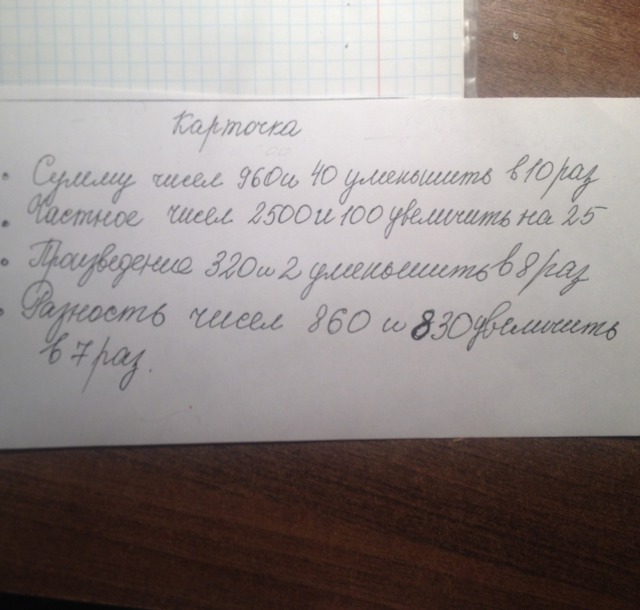 Карточка
• Сумму чисел 960 и 40 уменьшить в 10 раз
• Частное чисел 2500 и 100 увеличить на 25
• Произведение 320 и 2 уменьшить в 8 раз
• Разность чисел 860 и 830 увеличить
в 7 раз.